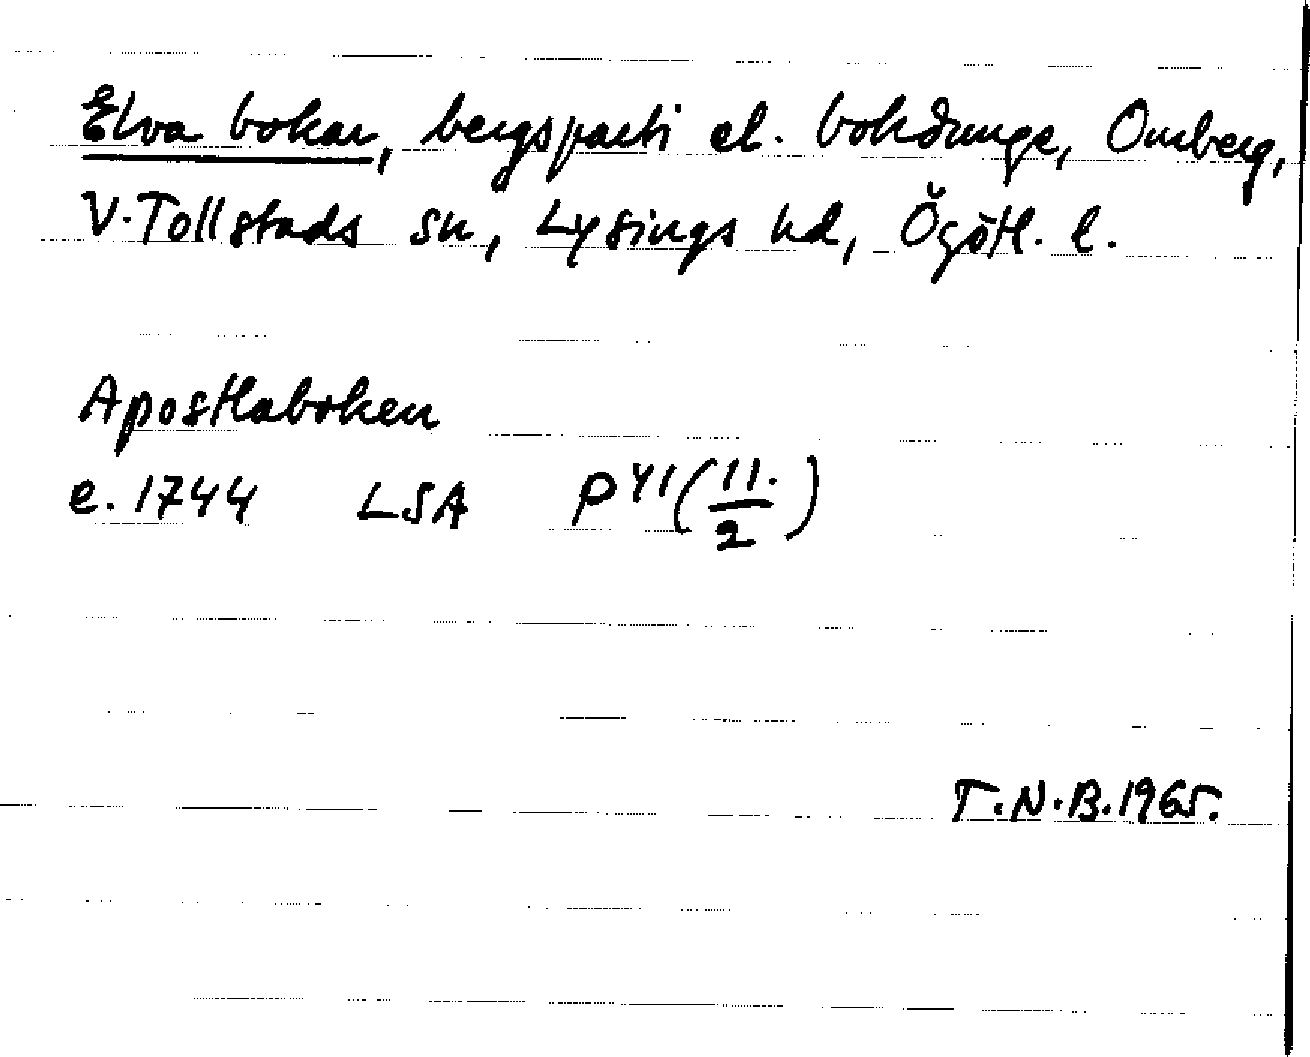 Elva bokar, bergsparti el. bokdunge, Omberg,
V. Tollstads sn, Lysings hd, Ögötl. l.
Apostlaboken
e. 1744 LSA P 41 (11./2)
T.N.B. 1965.